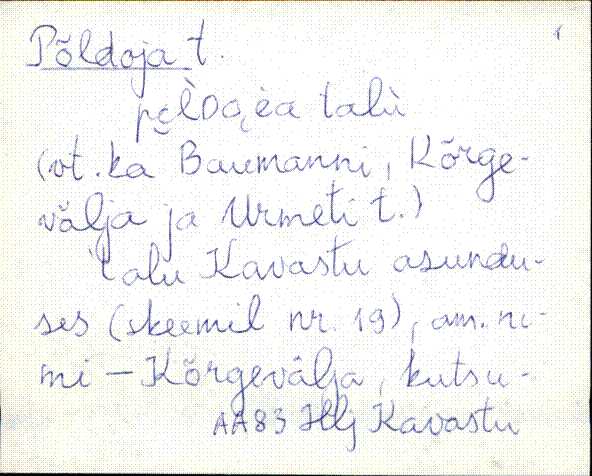 Põldoja t.
talu
(vt. ka Baumanni, Kõrge-
välja ja Urmeti t.)
talu Kavastu asundu-
ses (skeemil nr. 19), am. ni-
mi — Kõrgevälja, kutsu-
AA83 Hlj Kavastu